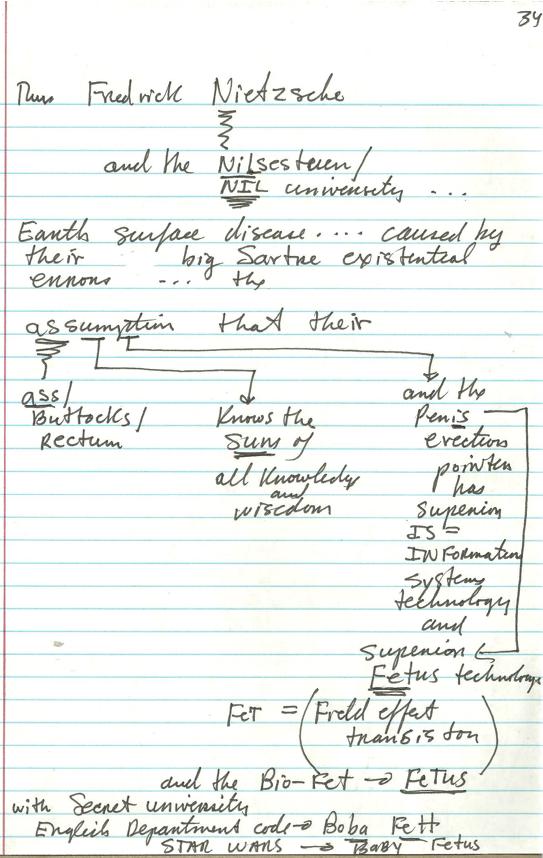 34
Thus Fredrick Nietzsche
and the Nilsesteuen/
NIL university ...
Earth surface disease .... caused by
their big Sartre existential
errors ... the
assumption that their
ass/
Buttocks/
Rectum
Knows the
Sum of
all Knowledge
and
wisdom
and the
Penis
erection
pointer
has
superior
IS =
INFormation
systems
technology
and
superior
Fetus technology
FET = (Field effect
transistor)
and the Bio-Fet → FETUS
with Secret university
English Department code → Boba Fett
STAR WARS → BABY Fetus